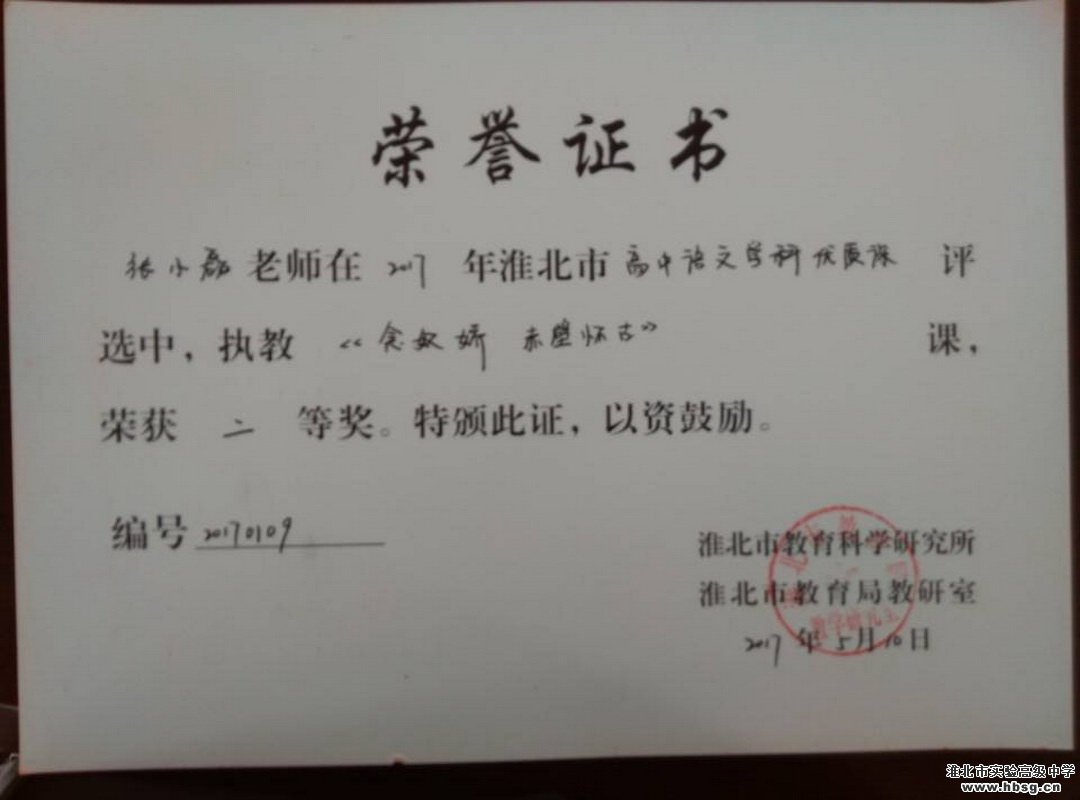 荣誉证书
张小磊老师在 2017 年淮北市 高中语文学科优质课 评
选中，执教 《念奴娇 赤壁怀古》 课，
荣获 二 等奖。特颁此证，以资鼓励。
编号 20170109
淮北市教育科学研究所
淮北市教育局教研室
2017 年 5 月 10 日
淮北市实验高级中学
www.hbsg.cn